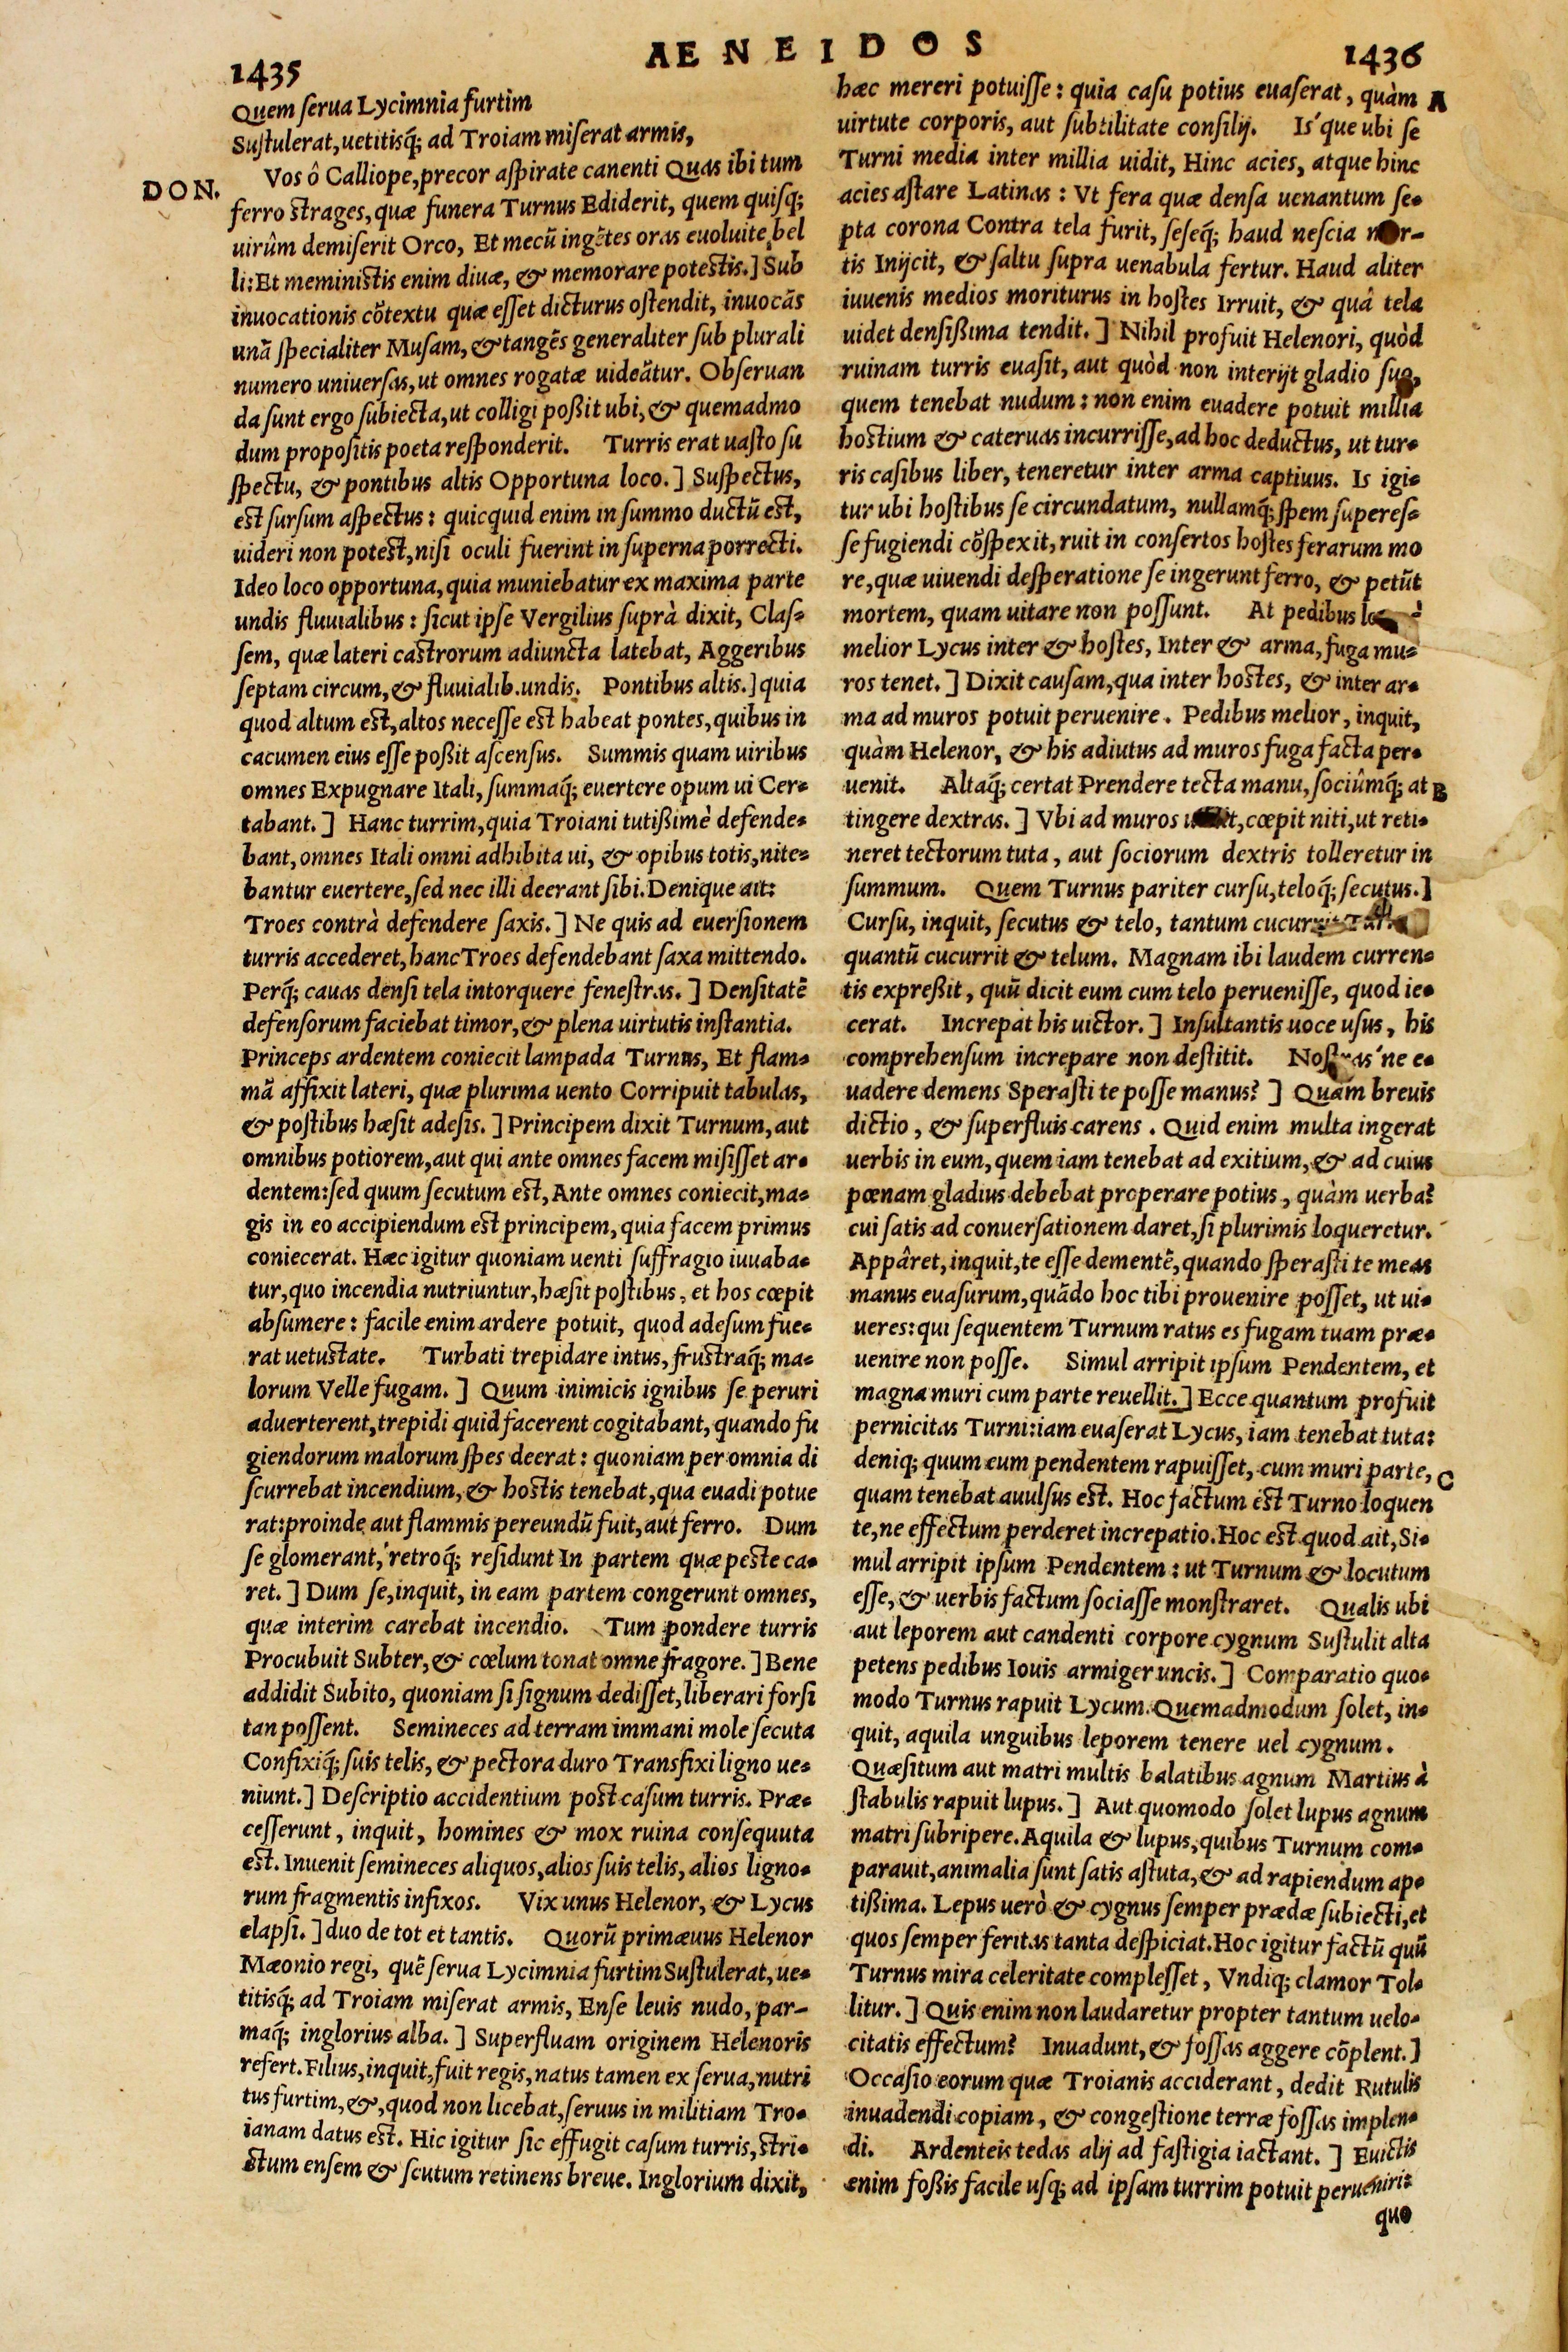 AENEIDOS
1435
Quem ſerua Lycimnia furtim
Suſtulerat, uetitisq́; ad Troiam miſerat armis,
DON.
Vos ô Calliope, precor aſpirate canenti Quas ibi tum
ferro ſtrages, quæ funera Turnus Ediderit, quem quiſq;
uirûm demiſerit Orco, Et mecū ingẽtes oras euoluite bel
li: Et meminiſtis enim diuæ, & memorare poteſtis.] Sub
inuocationis cõtextu quæ eſſet dicturus oſtendit, inuocãs
unã ſpecialiter Muſam, & tangẽs generaliter ſub plurali
numero uniuerſas, ut omnes rogatæ uideãtur. Obſeruan
da ſunt ergo ſubiecta, ut colligi poßit ubi, & quemadmo
dum propoſitis poeta reſponderit. Turris erat uaſto ſu
ſpectu, & pontibus altis Opportuna loco.] Suſpectus,
eſt ſurſum aſpectus: quicquid enim in ſummo ductũ eſt,
uideri non poteſt, niſi oculi fuerint in ſuperna porrecti.
Ideo loco opportuna, quia muniebatur ex maxima parte
undis fluuialibus: ſicut ipſe Vergilius ſuprà dixit, Claſ-
ſem, quæ lateri caſtrorum adiuncta latebat, Aggeribus
ſeptam circum, & fluuialib. undis. Pontibus altis.] quia
quod altum eſt, altos neceſſe eſt habeat pontes, quibus in
cacumen eius eſſe poßit aſcenſus. Summis quam uiribus
omnes Expugnare Itali, ſummaq́; euertere opum ui Cer-
tabant.] Hanc turrim, quia Troiani tutißimè defende-
bant, omnes Itali omni adhibita ui, & opibus totis, nite-
bantur euertere, ſed nec illi deerant ſibi. Denique ait:
Troes contrà defendere ſaxis.] Ne quis ad euerſionem
turris accederet, hanc Troes defendebant ſaxa mittendo.
Perq́; cauas denſi tela intorquere feneſtras.] Denſitatẽ
defenſorum faciebat timor, & plena uirtutis inſtantia.
Princeps ardentem coniecit lampada Turnus, Et flam-
mã affixit lateri, quæ plurima uento Corripuit tabulas,
& poſtibus hæſit adeſis.] Principem dixit Turnum, aut
omnibus potiorem, aut qui ante omnes facem miſiſſet ar-
dentem: ſed quum ſecutum eſt, Ante omnes coniecit, ma-
gis in eo accipiendum eſt principem, quia facem primus
coniecerat. Hæc igitur quoniam uenti ſuffragio iuuaba-
tur, quo incendia nutriuntur, hæſit poſtibus, et hos cœpit
abſumere: facile enim ardere potuit, quod adeſum fue-
rat uetuſtate. Turbati trepidare intus, fruſtraq́; ma-
lorum Velle fugam.] Quum inimicis ignibus ſe peruri
aduerterent, trepidi quid facerent cogitabant, quando fu
giendorum malorum ſpes deerat: quoniam per omnia di
ſcurrebat incendium, & hoſtis tenebat, qua euadi potue
rat: proinde aut flammis pereundũ fuit, aut ferro. Dum
ſe glomerant, retroq́; reſidunt In partem quæ peſte ca-
ret.] Dum ſe, inquit, in eam partem congerunt omnes,
quæ interim carebat incendio. Tum pondere turris
Procubuit Subter, & cœlum tonat omne fragore.] Bene
addidit Subito, quoniam ſi ſignum dediſſet, liberari forſi
tan poſſent. Semineces ad terram immani mole ſecuta
Confixiq́; ſuis telis, & pectora duro Transfixi ligno ue-
niunt.] Deſcriptio accidentium poſt caſum turris. Præ-
ceſſerunt, inquit, homines & mox ruina conſequuta
eſt. Inuenit ſemineces aliquos, alios ſuis telis, alios ligno-
rum fragmentis infixos. Vix unus Helenor, & Lycus
elapſi.] duo de tot et tantis. Quorũ primæuus Helenor
Mæonio regi, quẽ ſerua Lycimnia furtim Suſtulerat, ue-
titisq́; ad Troiam miſerat armis, Enſe leuis nudo, par-
maq́; inglorius alba.] Superfluam originem Helenoris
refert. Filius, inquit, fuit regis, natus tamen ex ſerua, nutri
tus furtim, &, quod non licebat, ſeruus in militiam Tro-
ianam datus eſt. Hic igitur ſic effugit caſum turris, ſtri-
ctum enſem & ſcutum retinens breue. Inglorium dixit,
1436
hæc mereri potuiſſe: quia caſu potius euaſerat, quàm A
uirtute corporis, aut ſubtilitate conſilij. Is'que ubi ſe
Turni media inter millia uidit, Hinc acies, atque hinc
acies aſtare Latinas: Vt fera quæ denſa uenantum ſe-
pta corona Contra tela furit, ſeſeq́; haud neſcia mor-
tis Inijcit, & ſaltu ſupra uenabula fertur. Haud aliter
iuuenis medios moriturus in hoſtes Irruit, & quâ tela
uidet denſißima tendit.] Nihil profuit Helenori, quòd
ruinam turris euaſit, aut quòd non interijt gladio ſuo,
quem tenebat nudum: non enim euadere potuit millia
hoſtium & cateruas incurriſſe, ad hoc deductus, ut tur-
ris caſibus liber, teneretur inter arma captiuus. Is igi-
tur ubi hoſtibus ſe circundatum, nullamq́; ſpem ſupereſ-
ſe fugiendi cõſpexit, ruit in conſertos hoſtes ferarum mo
re, quæ uiuendi deſperatione ſe ingerunt ferro, & petũt
mortem, quam uitare non poſſunt. At pedibus
melior Lycus inter & hoſtes, Inter & arma, fuga mu-
ros tenet.] Dixit cauſam, qua inter hoſtes, & inter ar-
ma ad muros potuit peruenire. Pedibus melior, inquit,
quàm Helenor, & his adiutus ad muros fuga facta per-
uenit. Altaq́; certat Prendere tecta manu, ſociûmq́; at B
tingere dextras.] Vbi ad muros cœpit niti, ut reti-
neret tectorum tuta, aut ſociorum dextris tolleretur in
ſummum. Quem Turnus pariter curſu, teloq́; ſecutus.]
Curſu, inquit, ſecutus & telo, tantum cucurrit
quantũ cucurrit & telum. Magnam ibi laudem curren-
tis expreßit, quũ dicit eum cum telo perueniſſe, quod ie-
cerat. Increpat his uictor.] Inſultantis uoce uſus, his
comprehenſum increpare non deſtitit. Noſtras'ne e-
uadere demens Speraſti te poſſe manus?] Quàm breuis
dictio, & ſuperfluis carens. Quid enim multa ingerat
uerbis in eum, quem iam tenebat ad exitium, & ad cuius
pœnam gladius debebat properare potius, quàm uerba?
cui ſatis ad conuerſationem daret, ſi plurimis loqueretur.
Appâret, inquit, te eſſe dementẽ, quando ſperaſti te meas
manus euaſurum, quãdo hoc tibi prouenire poſſet, ut ui-
ueres: qui ſequentem Turnum ratus es fugam tuam præ-
uenire non poſſe. Simul arripit ipſum Pendentem, et
magna muri cum parte reuellit.] Ecce quantum profuit
pernicitas Turni: iam euaſerat Lycus, iam tenebat tuta:
deniq; quum eum pendentem rapuiſſet, cum muri parte, C
quam tenebat auulſus eſt. Hoc factum eſt Turno loquen
te, ne effectum perderet increpatio. Hoc eſt quod ait, Si-
mul arripit ipſum Pendentem: ut Turnum & locutum
eſſe, & uerbis factum ſociaſſe monſtraret. Qualis ubi
aut leporem aut candenti corpore cygnum Suſtulit alta
petens pedibus Iouis armiger uncis.] Comparatio quo-
modo Turnus rapuit Lycum. Quemadmodum ſolet, in-
quit, aquila unguibus leporem tenere uel cygnum.
Quæſitum aut matri multis balatibus agnum Martius à
ſtabulis rapuit lupus.] Aut quomodo ſolet lupus agnum
matri ſubripere. Aquila & lupus, quibus Turnum com-
parauit, animalia ſunt ſatis aſtuta, & ad rapiendum ap-
tißima. Lepus uerò & cygnus ſemper prædæ ſubiecti, et
quos ſemper feritas tanta deſpiciat. Hoc igitur factũ quũ
Turnus mira celeritate compleſſet, Vndiq; clamor Tol-
litur.] Quis enim non laudaretur propter tantum uelo-
citatis effectum? Inuadunt, & foſſas aggere cõplent.]
Occaſio eorum quæ Troianis acciderant, dedit Rutulis
inuadendi copiam, & congeſtione terræ foſſas implen-
di. Ardenteis tedas alij ad faſtigia iactant.] Euictis
enim foßis facile uſq; ad ipſam turrim potuit perueniri:
quo